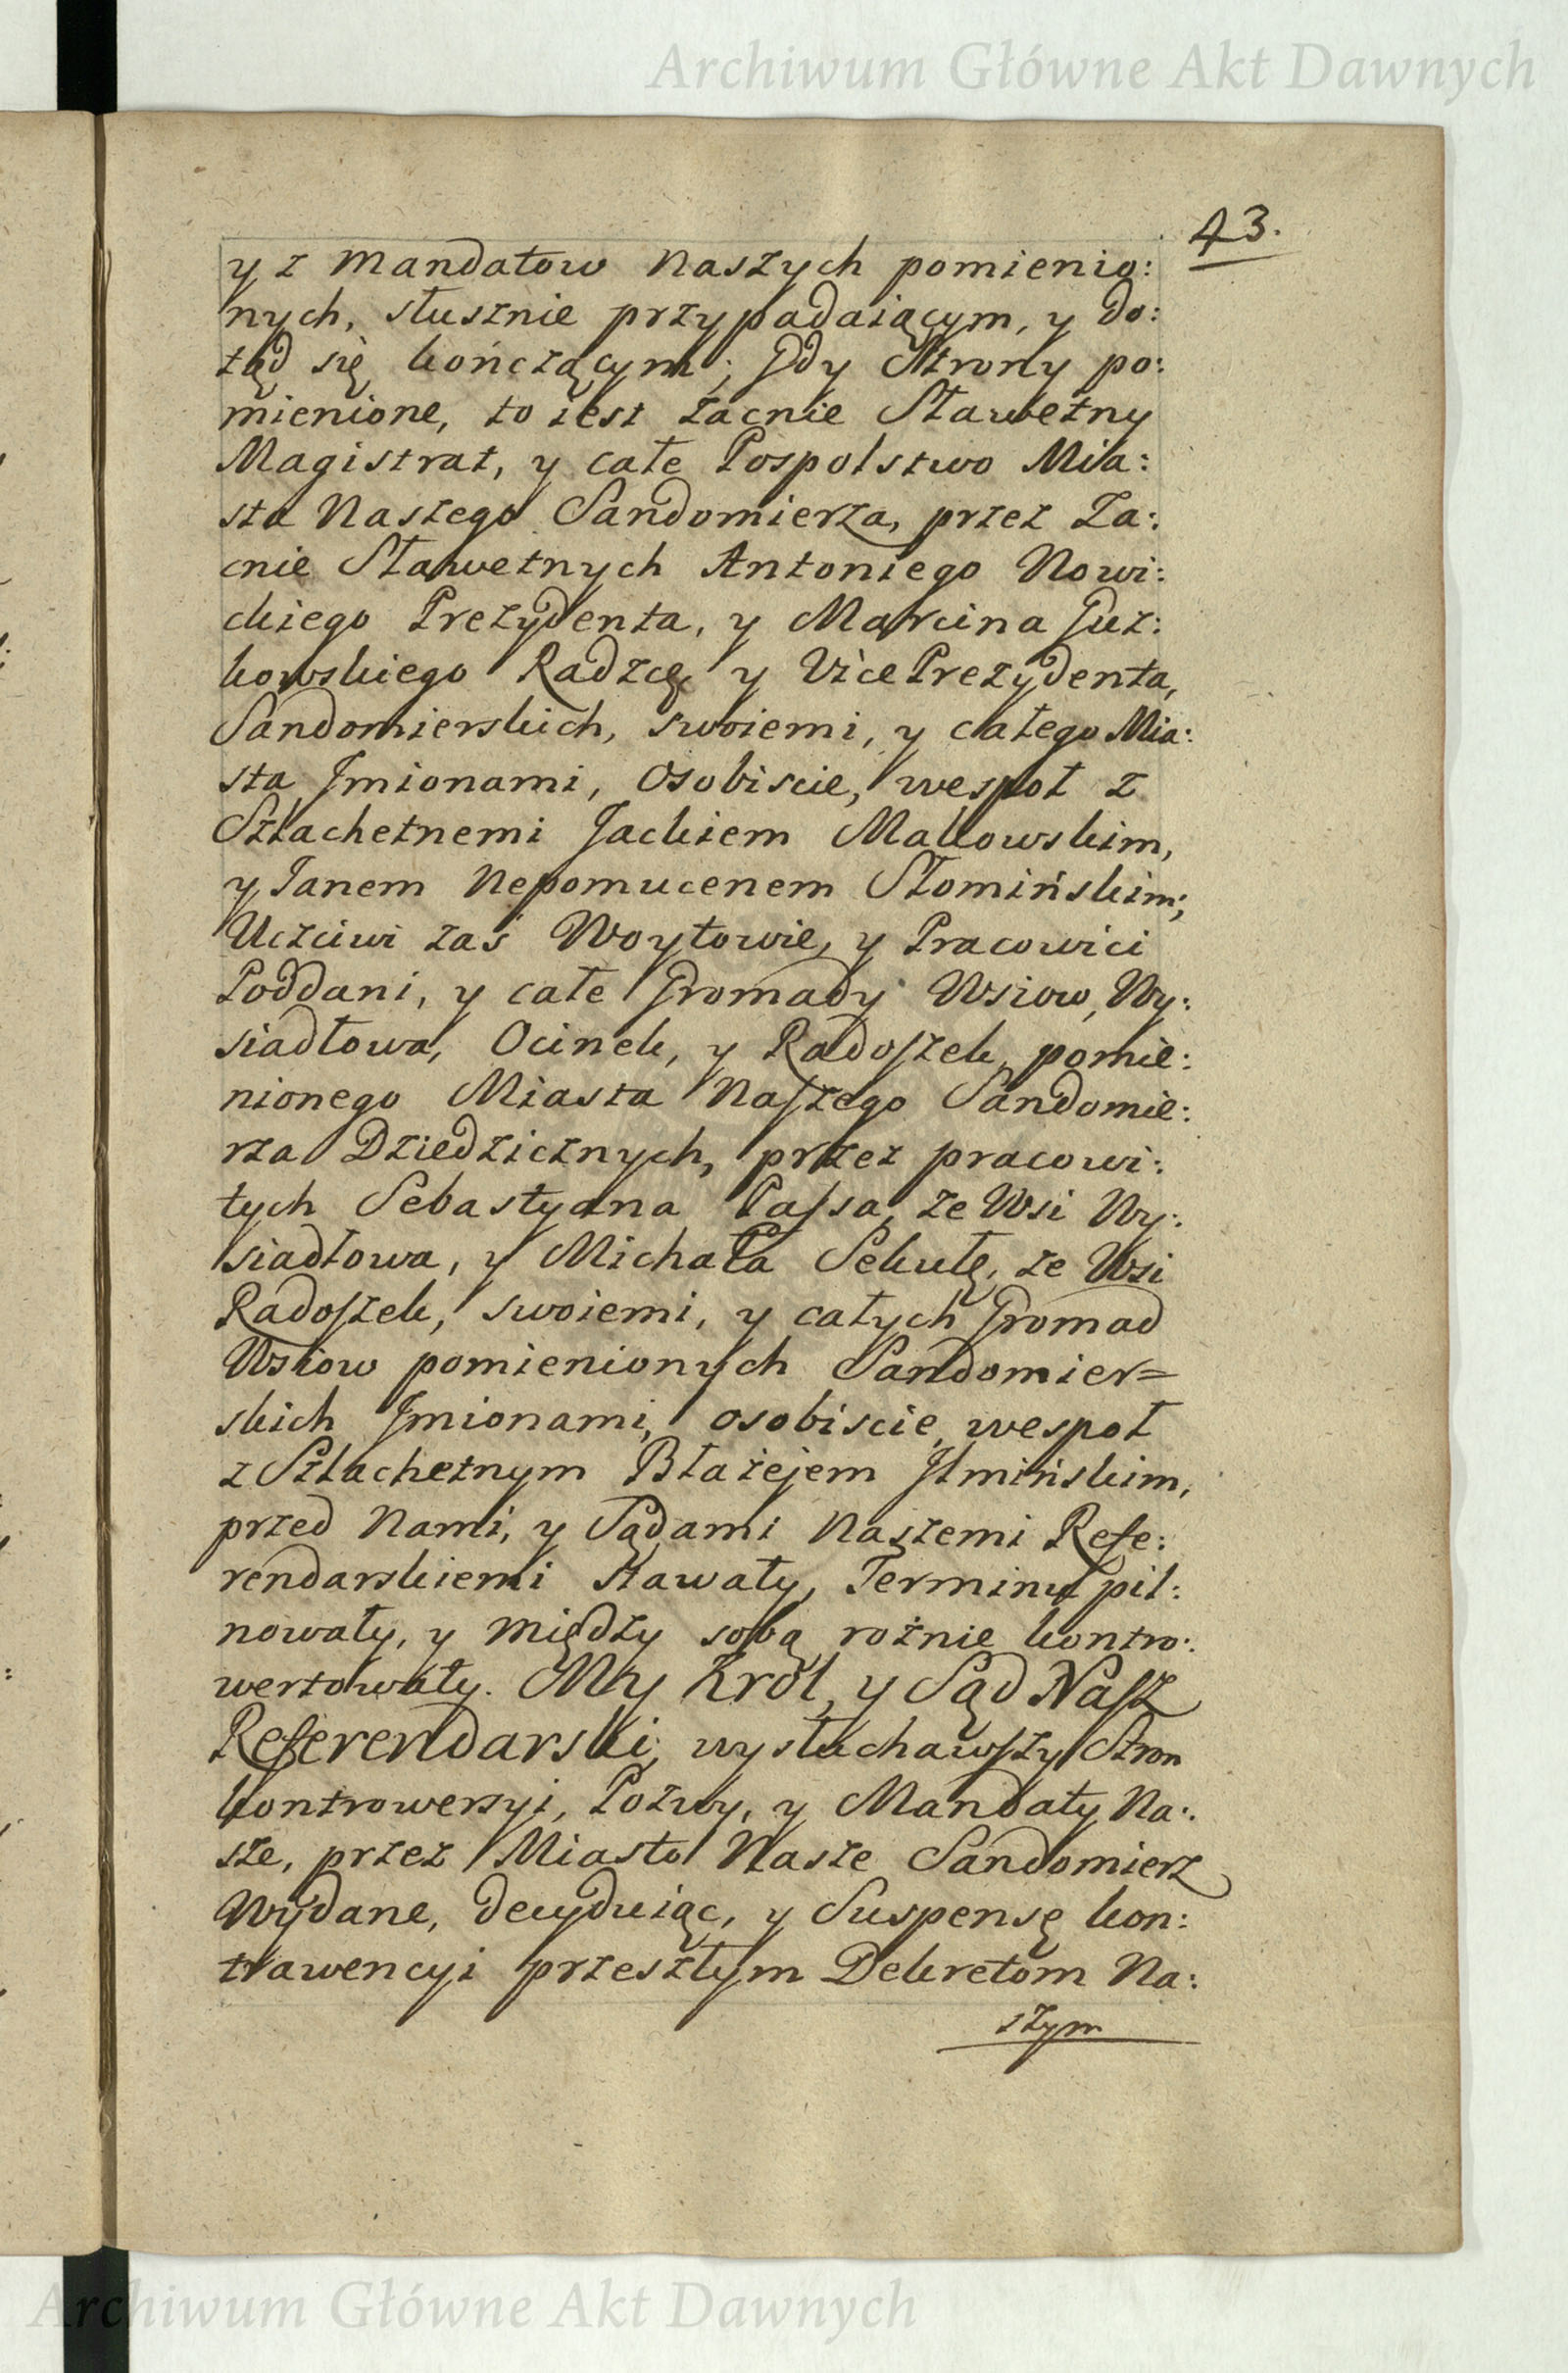 Archiwum Główne Akt Dawnych
43.
y z Mandatow Naszych pomienio:
nych, słusznie przypadaiącym, y do:
tąd się kończącym; Gdy Strony po:
mienione, to iest Zacnie Sławetny
Magistrat, y całe Pospolstwo Mia:
sta Naszego Sandomierza, przez Za:
cnie Sławetnych Antoniego Nowi:
ckiego Prezydenta, y Marcina Guz:
kowskiego Radzcę y Vice Prezydenta,
Sandomierskich, swoiemi, y całego Mia:
sta Jmionami, Osobiscie, wespoł z
Szlachetnemi Jackiem Makowskim,
y Janem Nepomucenem Słomińskim;
Uczciwi zaś Woytowie, y Pracowici
Poddani, y całe Gromady Wsiow, Wy:
siadłowa, Ocinek, y Radoſzek, pomie:
nionego Miasta Naſzego Sandomie:
rza Dziedzicznych, przez pracowi:
tych Sebastyana Paſsa, ze Wsi Wy:
siadłowa, y Michała Sekułę, ze Wsi
Radoſzek, swoiemi, y całych Gromad
Wsiow pomienionych Sandomier=
skich Jmionami, osobiscie, wespoł
z Szlachetnym Błażejem Jłmińskim,
przed Nami, y Sądami Naszemi Refe:
rendarskiemi stawały, Terminu pil:
nowały, y między sobą rożnie kontro:
wertowały. My Krol, y Sąd Naſz
Referendarski, wysłuchawſzy Stron
kontrowersyi, Pozwy, y Mandaty Na:
sze, przez Miasto Nasze Sandomierz
Wydane, decyduiąc, y Suspensę kon:
trawencyi przeszłym Dekretom Na:
szym
Archiwum Główne Akt Dawnych